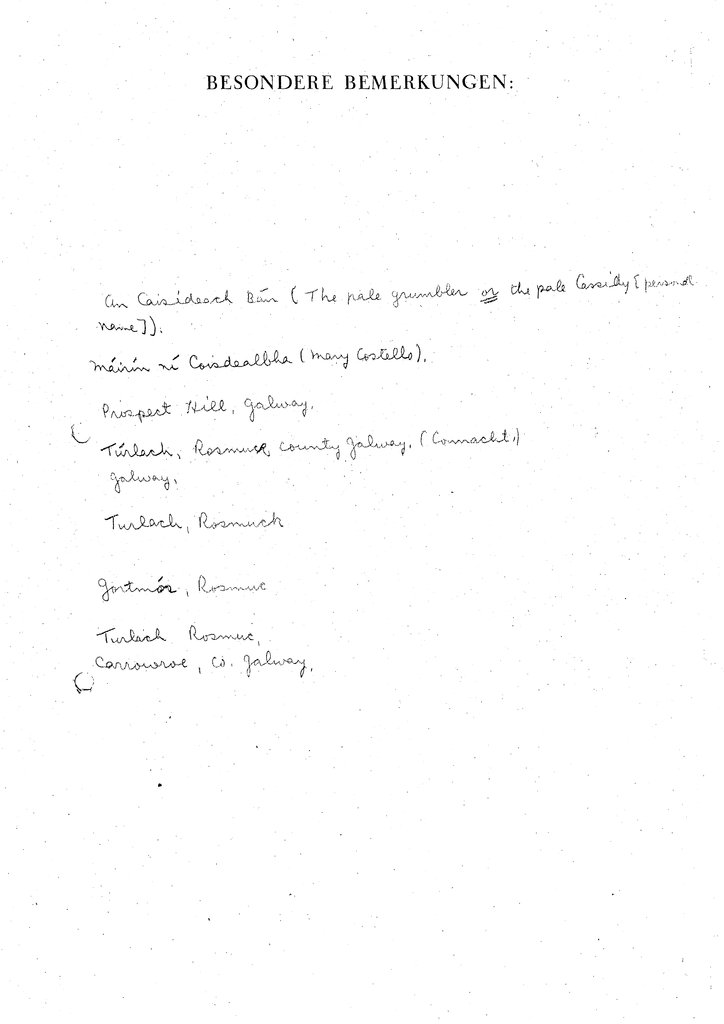 BESONDERE BEMERKUNGEN:
An Caisideach Bán (The pale grumbler or the pale Cassidy [personal
name]).
Máirín ní Coisdealbha (Mary Costello).
Prospect Hill, Galway.
Túrlach, Rosmuck, County Galway. (Connacht.)
Galway.
Turlach, Rosmuck
Gortmór, Rosmuc
Turlach Rosmuc,
Carrowroe, Co. Galway,